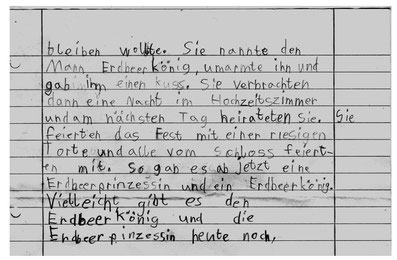 bleiben wollte. Sie nannte den
Mann Erdbeerkönig, umarmte ihn und
gab ihm einen Kuss. Sie verbrachten
dann eine Nacht im Hochzeitszimmer
und am nächsten Tag heirateten Sie. Sie
feierten das Fest mit einer riesigen
Torte und alle vom Schloss feiert-
en mit. So gab es ab jetzt eine
Erdbeerprinzessin und ein Erdbeerkönig.
Vielleicht gibt es den
Erdbeerkönig und die
Erdbeerpinzessin heute noch,